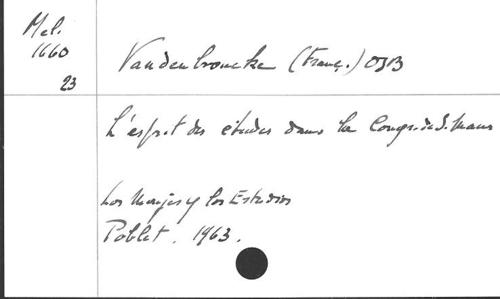 Mel.
1660
23
Vandenbroucke (Franç.) OSB
L'esprit des études dans la Congr. de S. Maur
Los Monjes y los Estudios
Poblet. 1963.